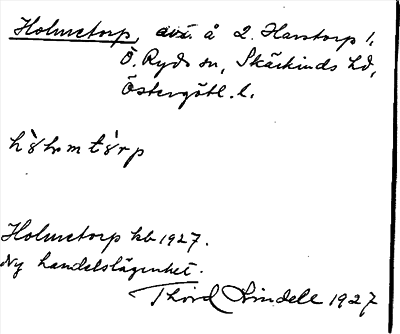 Holmetorp, avs. å 2. Harstorp 1.
Ö. Ryds sn, Skärkinds hd,
Östergötl. l.
Holmetorp kb 1927.
Ny handelslägenhet.
Thord Lindell 1927